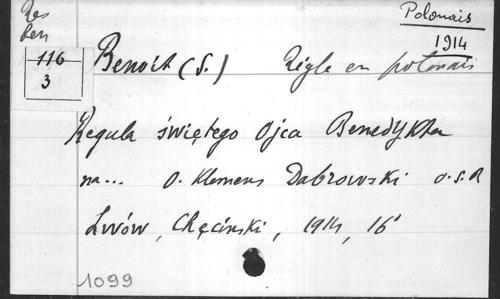 Polonais
1914
116
3
Benoit (S.) Règle en polonais
Regula świętego Ojca Benedykta
na... O. Klemens Dabrowski O.S.B
Lwów, Chęcinski, 1914, 16°
1099